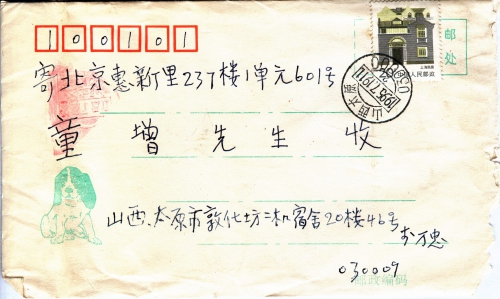 100101
邮
处
上海民居
中国人民邮政
山西太原
寄北京惠新里237楼1单元601号
童增先生收
山西太原市敦化坊二机宿舍20楼46号
030009
邮政编码